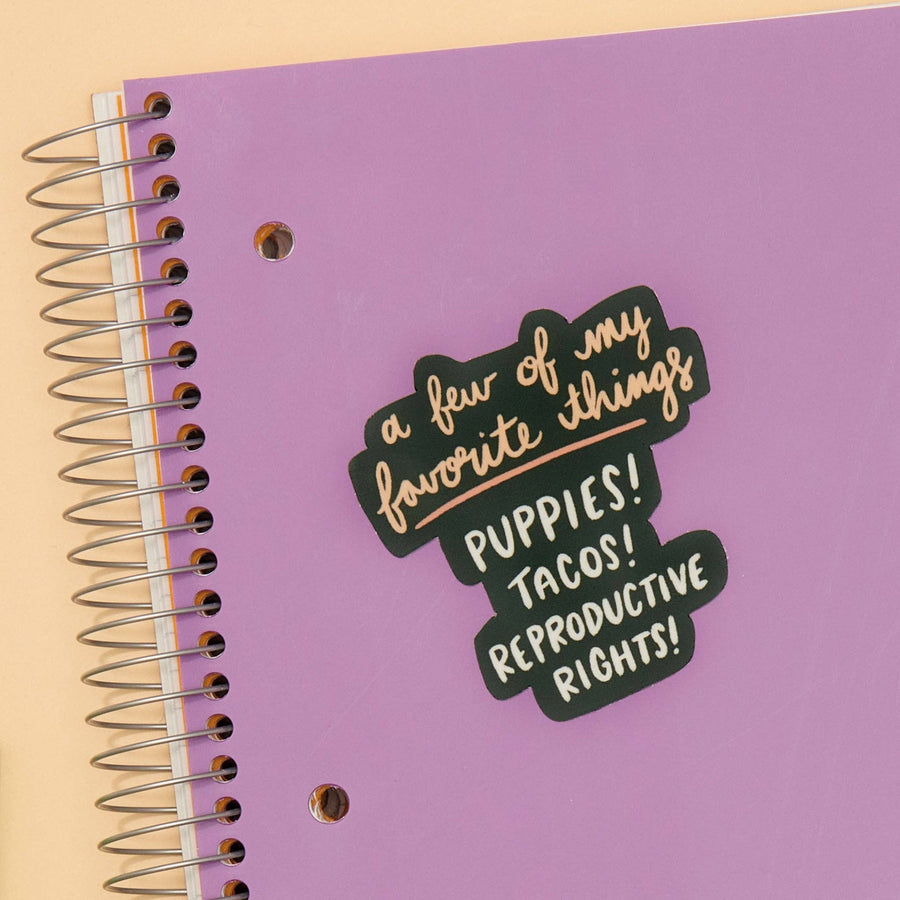 a few of my
favorite things
PUPPIES!
TACOS!
REPRODUCTIVE
RIGHTS!